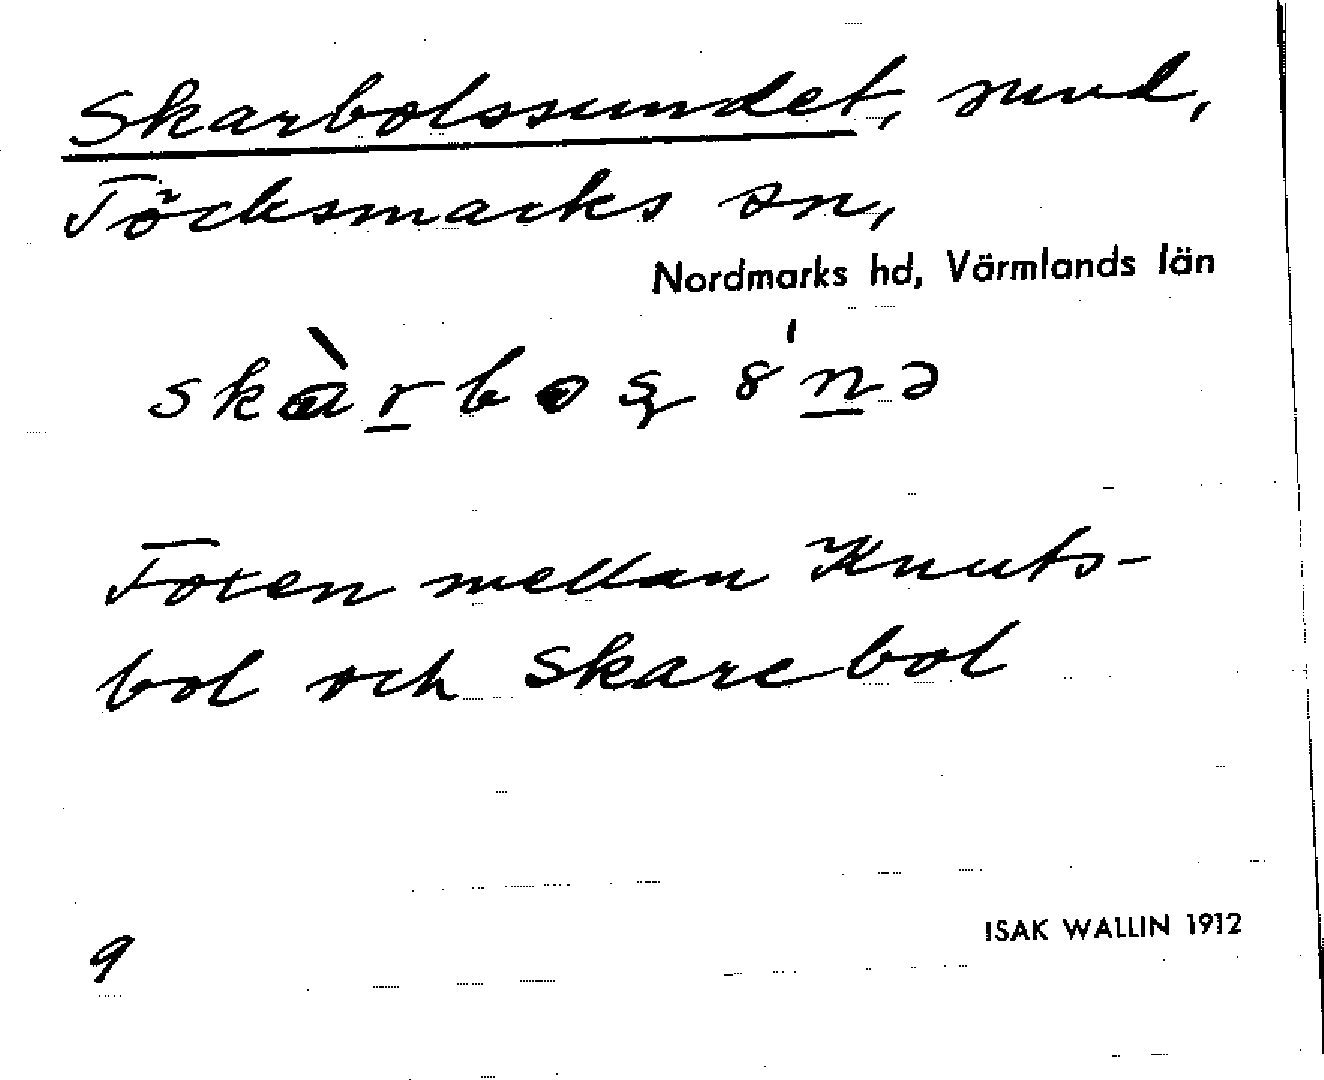 Skarbolssundet, sund,
Töcksmarks sn,
Nordmarks hd, Värmlands län
skàrboş 8'nə
Foxen mellan Knuts-
bol och Skarebol
9
ISAK WALLIN 1912